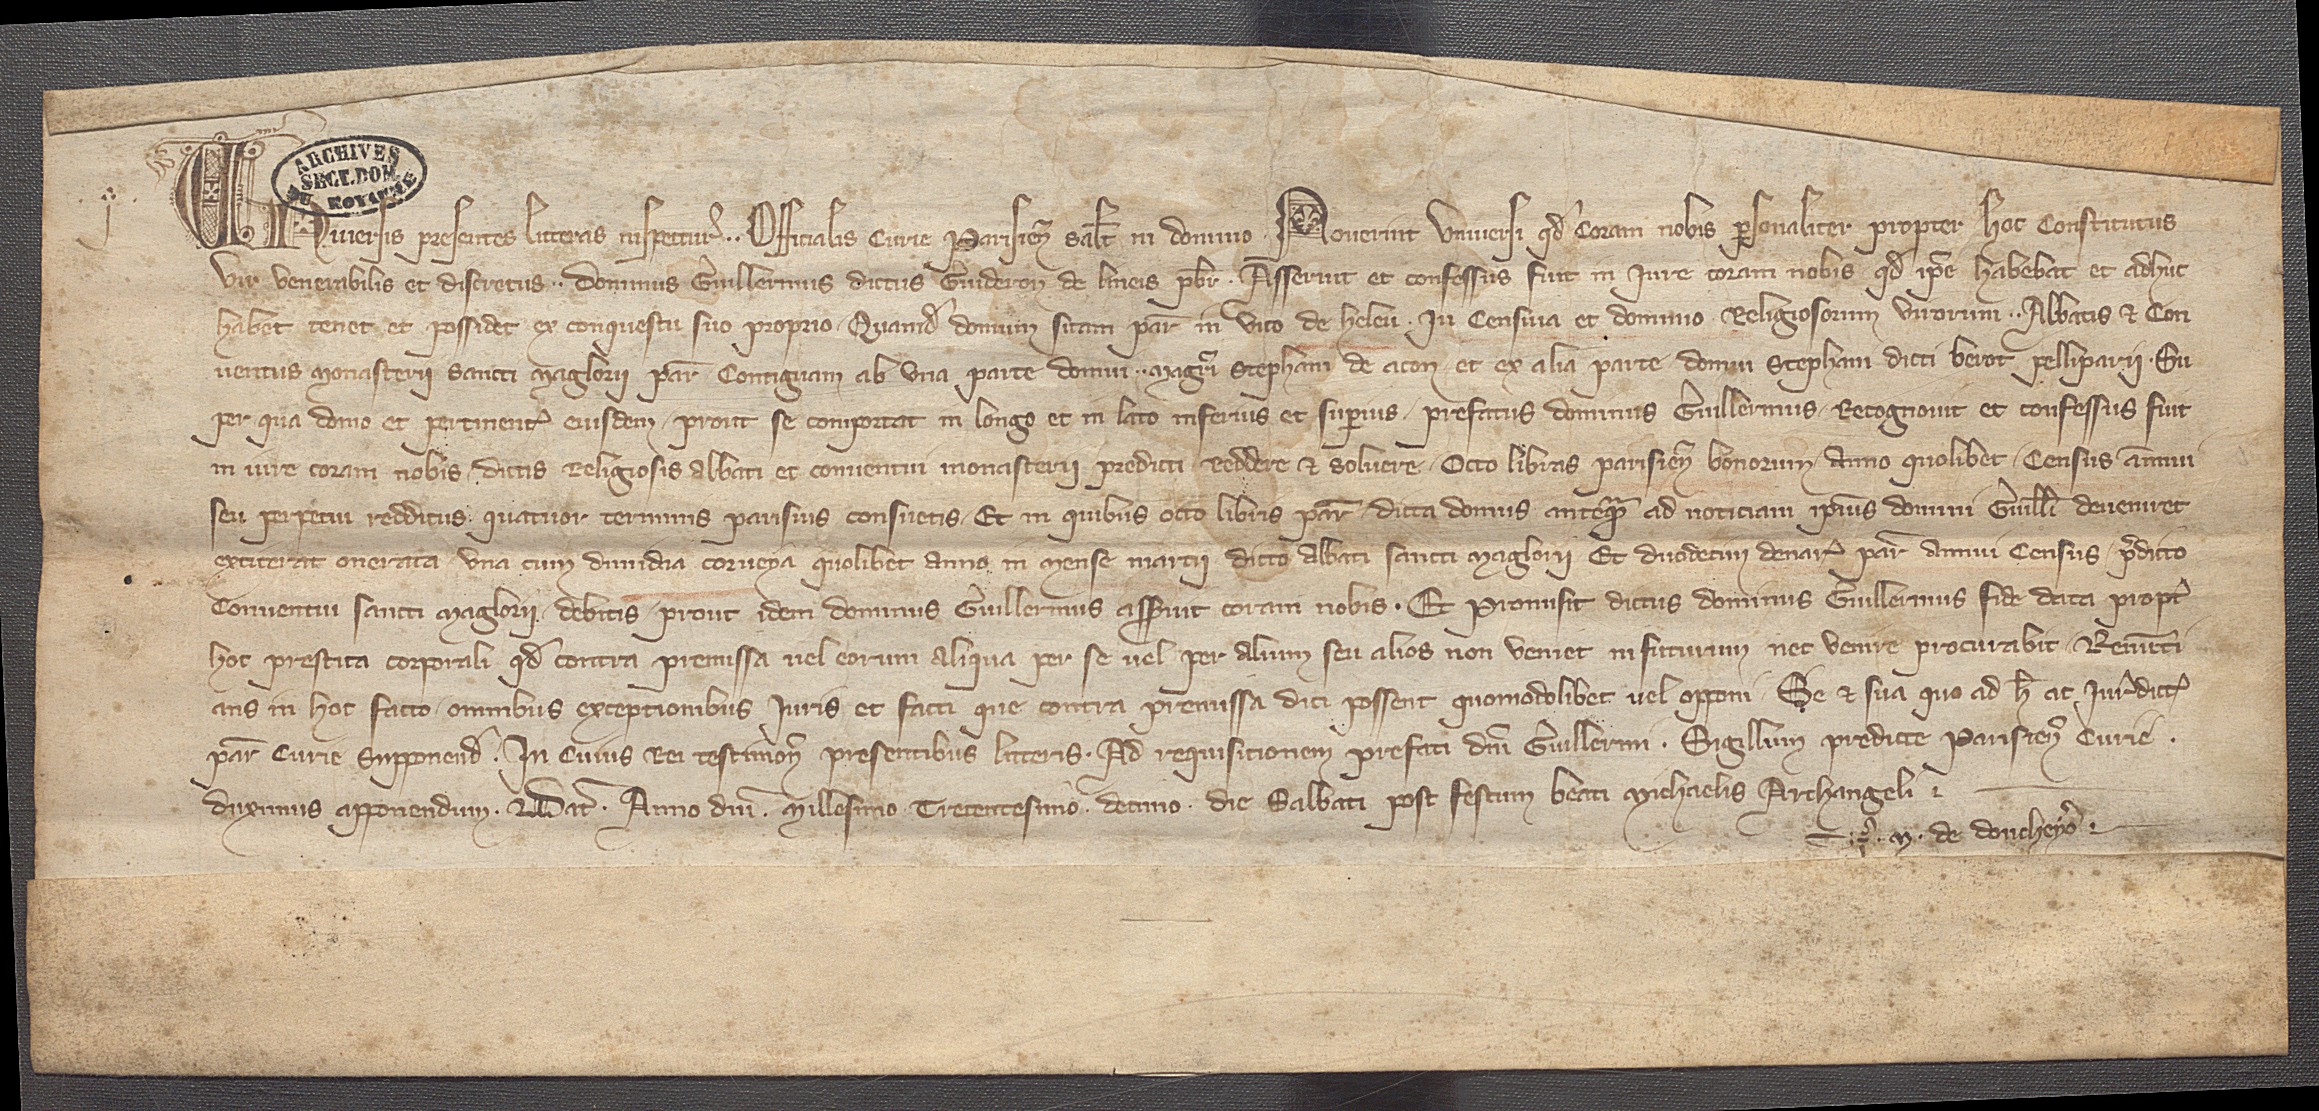 ARCHIVES
SECT. DOM.
DU ROYAUME
.j.
Universis presentes litteras inspectur̉ .. Officialis Curie Parisieñ salt̄ in domino . Noverint Universi qd̉ Coram nobis ꝑsonaliter propter hoc Constitutus
vir venerabilis et discretus .. dominus Guillermus dictus Guideron de lineis pbr̄ . Asseruit et confessus fuit in Jure coram nobis qd̉ ip̄e habebat et adhuc
habet tenet et possidet ex conquestu suo proprio Quamd̉ domum sitam par̄ in vico de heleu . In Censiva et dominio Religiosorum virorum .. Abbatis & Con
ventus Monasterii sancti Maglorii par̄ Contiguam ab una parte domui .. magr̄i Stephani de acon et ex alia parte domui Stephani dicti berot pelliparii . Su
per qua domo et pertinent̉ eiusdem prout se comportat in longo et in lato inferius et suꝑius prefatus dominus Guillermus Recognovit et confessus fuit
in iure coram nobis dictis Religiosis abbati et conventui monasterii predicti reddere & solvere Octo libras parisieñ bonorum Anno quolibet Census annui
seu perpetui redditus quatuor terminis parisius consuetis Et in quibus octo libris par̄ dicta domus anteq̄ꝫ ad noticiam ip̄ius domini Guill̄i deveniret
extiterat onerata una cum dimidia corveya quolibet anno in mense martii dicto abbati sancti Maglorii Et duodecim denar̉ par̄ annui Census p̄dicto
Conventui sancti Maglorii debitis prout idem dominus Guillermus asseruit coram nobis . Et Promisit dictus dominus Guillermus fide data propt̉
hoc prestita corporali qd̉ contra premissa vel eorum aliqua per se vel per alium seu alios non veniet in futurum nec venire procurabit Renūci
ans in hoc facto omnibus exceptionibus Juris et facti que contra premissa dici possent quomodolibet vel opponi Se & sua quo ad h̄ ac Jur̉dict̉
par̄ Curie Supponend̉ . In Cuius Rei testimoñ presentibus litteris . Ad requisitionem prefati dn̄i Guillermi . Sigillum predicte Parisieñ Curie .
duximus apponendum . Dat̄ . Anno dn̄i . Millesimo Trecentesimo decimo . die Sabbati post festum beati Michaelis Archangeli
. M . de doncheyō